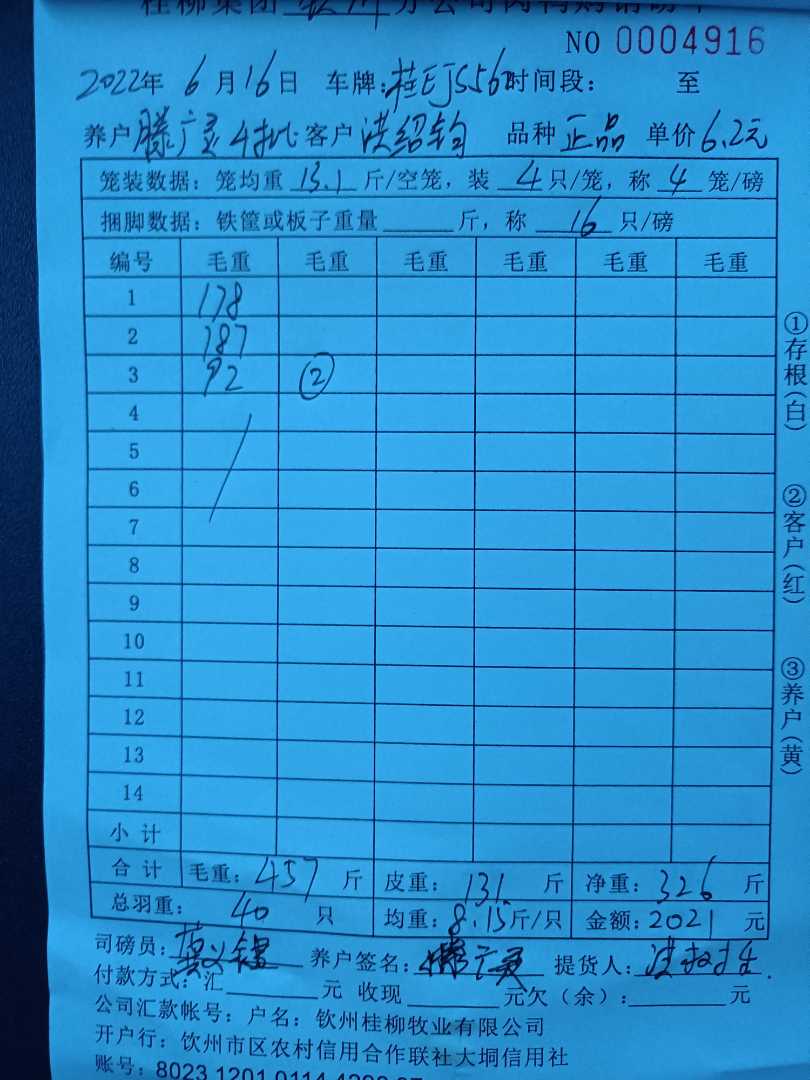 桂柳集团 钦州 分公司肉鸭购销磅单
NO 0004916
2022年 6月16日 车牌:桂EJS562时间段: 至
养户 滕广灵4批 客户 洪绍钧 品种 正品 单价 6.2元
笼装数据: 笼均重 13.1 斤/空笼, 装 4 只/笼, 称 4 笼/磅
捆脚数据: 铁筐或板子重量 斤, 称 16 只/磅
编号 毛重 毛重 毛重 毛重 毛重 毛重
1 178
2 187
3 92 ②
4
5
6
7
8
9
10
11
12
13
14
小计
合计 毛重: 457 斤 皮重: 131 斤 净重: 326 斤
总羽重: 40 只 均重: 8.15斤/只 金额: 2021 元
司磅员: 养户签名: 滕广灵 提货人:
付款方式: 汇 元 收现 元欠(余): 元
公司汇款帐号: 户名: 钦州桂柳牧业有限公司
开户行: 钦州市区农村信用合作联社大垌信用社
账号: 8023 1201 0114
①存根(白)
②客户(红)
③养户(黄)